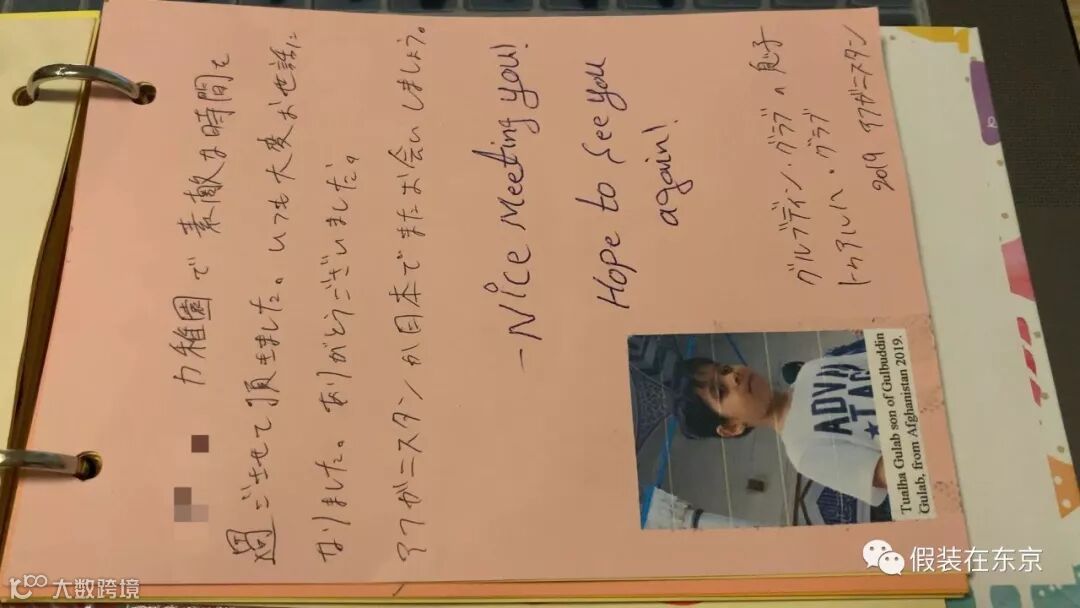 カ稚園で素敵な時間を
過ごさせて頂きました。いつも大変お世話に
なりました。ありがとうございました。
アフガニスタンか日本でまたお会いしましょう。
-Nice Meeting you!
Hope to see you
again!
グルブディン・グラブの息子
トゥアルハ・グラブ
2019 アフガニスタン
ADVN
TAG
Tualha Gulab son of Gulbuddin
Gulab, from Afghanistan 2019.
假装在东京
大数跨境